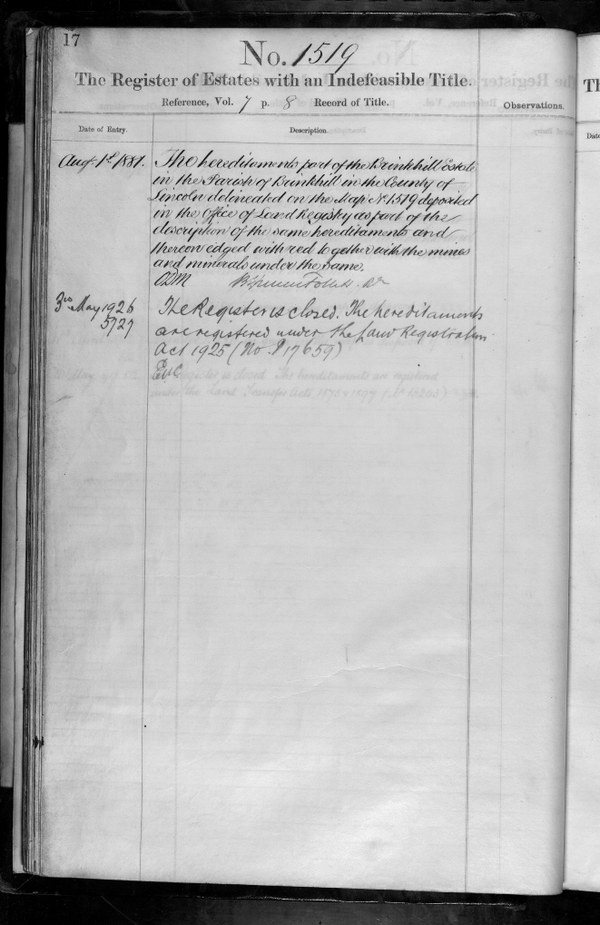 17
No. 1519
The Register of Estates with an Indefeasible Title.
Reference, Vol. 7 p. 8 Record of Title.
Observations.
Date of Entry.
Description.
Augt. 1st 1881.
The hereditaments part of the Brinkhill Estate
in the Parish of Brinkhill in the County of
Lincoln delineated on the Map No. 1519 deposited
in the Office of Land Registry as part of the
description of the same hereditaments and
thereon edged with red together with the mines
and minerals under the same.
3rd May 1926
5727
The Register is closed. The hereditaments
are registered under the Land Registration
Act 1925 (No. P 17659)